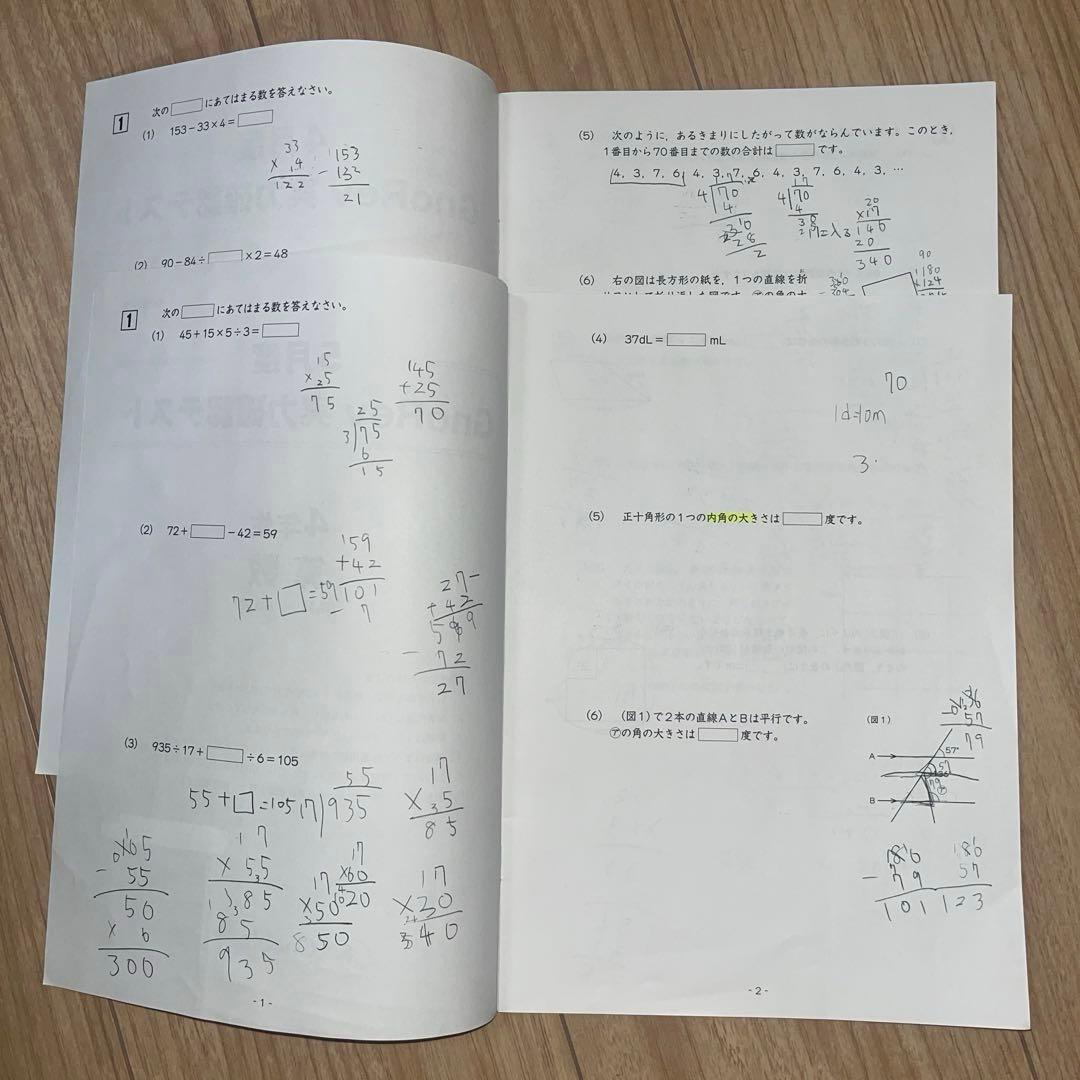 1
次の にあてはまる数を答えなさい。
(1) 153-33×4=
33
× 14
122
153
- 132
21
(2) 90-84÷ ×2=48
(5) 次のように，あるきまりにしたがって数がならんでいます。このとき，
1番目から70番目までの数の合計は です。
4，3，7，6，4，3，7，6，4，3，7，6，4，3，…
17
4)70
4
30
28
2
17
4)70
4
30
20
×17
140
20
340
(6) 右の図は長方形の紙を，1つの直線を折
90
180
+124
360
304
1
次の にあてはまる数を答えなさい。
(1) 45+15×5÷3=
15
×25
75
25
3)75
6
15
145
+25
70
(2) 72+ -42=59
159
+42
101
72+□=59
- 7
27-
+42
569
- 72
27
(3) 935÷17+ ÷6=105
55+□=105
55
17)935
17
×35
85
105
- 55
50
× 6
300
17
×55
1385
85
935
17
×50
850
17
×60
1020
17
×30
340
-1-
(4) 37dL= mL
70
1d=10m
3.
(5) 正十角形の1つの内角の大きさは 度です。
(6) (図1)で2本の直線AとBは平行です。
㋐の角の大きさは 度です。
(図1)
- 57
79
A
57°
57
79
B
186
- 79
101
186
57
123
-2-